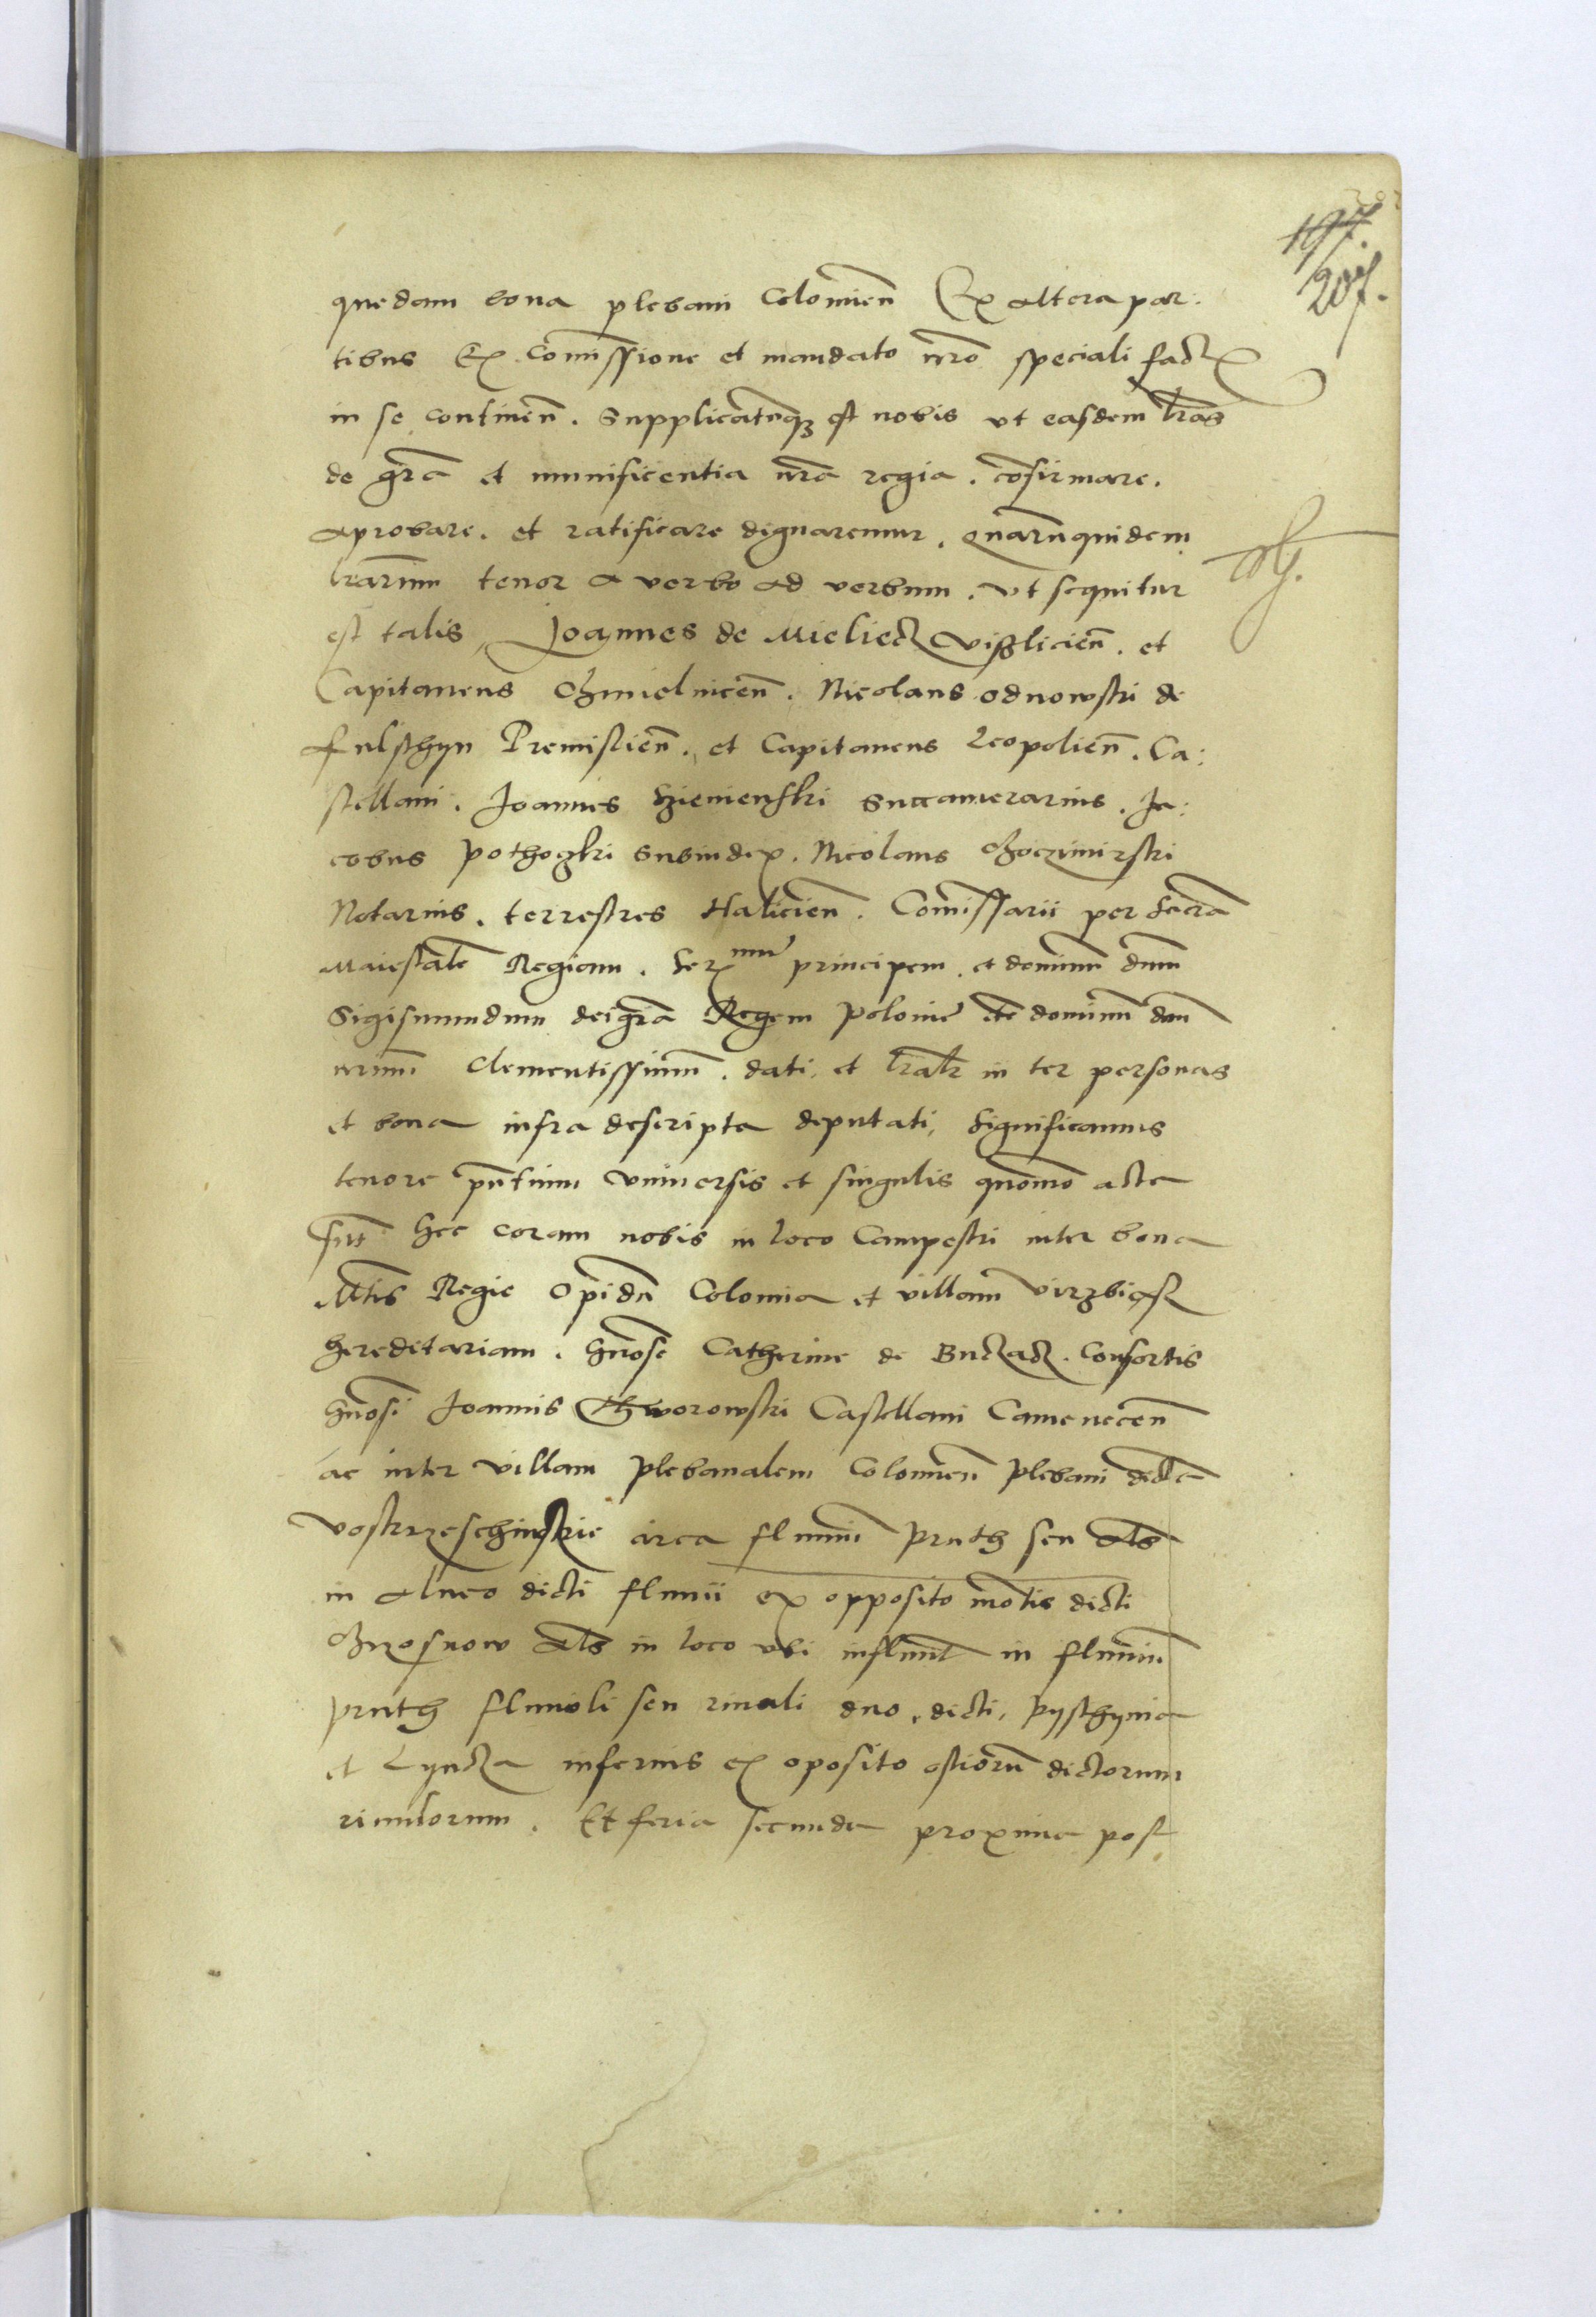 197.
207.
quedam bona plebani Colomien̄ Ex altera par:
tibus Ex Com̄issione et mandato nr̄o speciali fact
in se continen̄. Supplicatūq3 est nobis vt easdem lr̄as
de gr̄a et munificentia nr̄a regia. cōfirmare.
aprobare. et ratificare dignaremur. quarūquidem
lr̄arum tenor a verbo ad verbum. vt sequitur
est talis, Joannes de Mielecz Visslicien̄. et
Capitaneus Chmielnicen̄. Nicolaus odnowski de
fulschyn Premislien̄. et Capitaneus Leopolien̄. Ca:
stellani. Joannes Sienienski Succamerarius. Ja:
cobus pothoczki Subiudex. Nicolaus Choczimirski
Notarius. terrestres Halicien̄. Com̄issarii per Sacrā
Maiestatē Regiam. Ser^mū principem. et dominū dnm̄
Sigismundum dei gr̄a Regem Polonie etc dominū dnm̄
nr̄um Clementissimū. dati, et lr̄alr̄ in ter personas
et bona infra descripta deputati, Significamus
tenore pn̄tium Vniuersis et singulis quomō acta
sūt hec coram nobis in loco Campestri inter bona
Mtis Regie Opidū Colomia et villam virzbiasz
hereditariam. Gn̄ose Catherine de Buczacz. Consortis
Gn̄osi Joannis Thworowski Castellani Camenecen̄
ac inter villam plebanalem Colomien̄ Plebani dictā
voskrzeschinskie circa fluuiū Pruth seu als
in alueo dicti fluuii ex opposito mōtis dicti
als in loco vbi influūt in fluuiū
Pruth fluuioli seu riuuli duo, dicti, Pysthynia
et Lyucza inferius ex oposito ostiorū dictorum
riuulorum. Et feria secunda proxima post